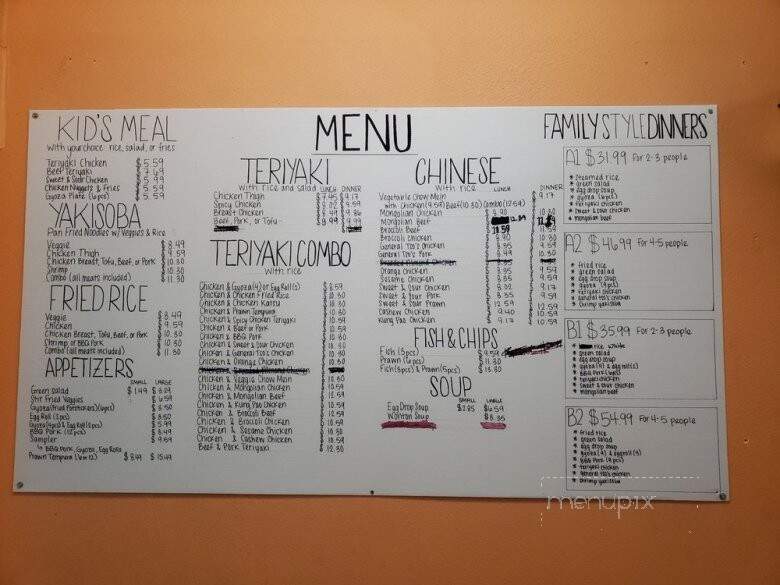 MENU
KID'S MEAL
with your choice rice, salad, or fries
Teriyaki Chicken $5.59
Beef Teriyaki $7.69
Sweet & Sour Chicken $5.99
Chicken Nuggets & Fries $5.59
Gyoza Plate (6pcs) $5.59
YAKISOBA
Pan Fried Noodles w/ Veggies & Rice
Veggie $8.49
Chicken Thigh $9.59
Chicken Breast, Tofu, Beef, or Pork $10.30
Shrimp $10.30
Combo (all meats included) $11.30
FRIED RICE
Veggie $8.49
Chicken $9.59
Chicken Breast, Tofu, Beef, or Pork $10.30
Shrimp or BBQ Pork $10.30
Combo (all meats included) $11.30
APPETIZERS
SMALL LARGE
Green Salad $1.49
Stir Fried Veggies $6.59
Gyoza (6pcs) $5.50
Egg Roll
Gyoza (4pcs) & Egg Roll (2pcs)
BBQ Pork (12pcs) $8.49
Sampler $9.69
BBQ Pork, Gyoza, Egg Rolls
Prawn Tempura $8.49 $15.49
TERIYAKI
with rice and salad LUNCH DINNER
Chicken Thigh $7.45 9.17
Spicy Chicken $8.02 9.59
Breast Chicken $8.49 9.86
Beef, Pork, or Tofu $8.99 9.99
TERIYAKI COMBO
with rice
Chicken & Gyoza (4) or Egg Roll(s) $9.59
Chicken & Chicken Fried Rice 10.30
Chicken & Chicken Katsu 10.30
Chicken & Prawn Tempura 10.30
Chicken & Spicy Chicken Teriyaki 10.59
Chicken & Beef or Pork 10.59
Chicken & BBQ Pork 10.59
Chicken & Sweet & Sour Chicken 10.30
Chicken & General Tso's Chicken 10.30
Chicken & Orange Chicken 10.30
Chicken & Veggie Chow Mein 10.30
Chicken & Mongolian Chicken 10.59
Chicken & Mongolian Beef 12.59
Chicken & Kung Pao Chicken 10.59
Chicken & Broccoli Beef 12.59
Chicken & Broccoli Chicken 10.59
Chicken & Sesame Chicken 10.30
Chicken & Cashew Chicken 10.59
Beef & Pork Teriyaki 12.30
CHINESE
with rice LUNCH DINNER
Vegetable Chow Mein 9.17
with Chicken (9.59) Beef (10.30) Combo (12.59)
Mongolian Chicken 8.90
Mongolian Beef
Broccoli Beef 10.59
Broccoli Chicken 8.90
General Tso's Chicken 8.95
General Tso's Pork 8.99
Orange Chicken 8.95 9.59
Sesame Chicken 8.85 9.59
Sweet & Sour Chicken 8.02 9.17
Sweet & Sour Pork 8.35 9.59
Sweet & Sour Prawn 8.59 12.59
Cashew Chicken 9.40 10.59
Kung Pao Chicken 9.17 10.59
FISH & CHIPS
Fish (3pcs) $9.59
Prawn (6pcs) $11.30
Fish (3pcs) & Prawn (5pcs) $13.30
SOUP
SMALL LARGE
Egg Drop Soup $2.85 $6.59
Wonton Soup $8.85
FAMILY STYLE DINNERS
A1 $31.99 For 2-3 people
* Steamed rice
* green salad
* egg drop soup
* gyoza (6pcs)
* teriyaki chicken
* sweet & sour chicken
* mongolian beef
A2 $46.99 For 4-5 people
* fried rice
* green salad
* egg drop soup
* gyoza (9pcs)
* teriyaki chicken
* general tso's chicken
* Shrimp yakisoba
B1 $35.99 For 2-3 people
* rice white
* green salad
* egg drop soup
* gyoza (4) & egg roll (2)
* BBQ Pork
* teriyaki chicken
* sweet & sour chicken
* mongolian beef
B2 $54.99 For 4-5 people
* fried rice
* green salad
* egg drop soup
* gyoza (4) & eggroll (3)
* BBQ Pork (9 pcs)
* teriyaki chicken
* general tso's chicken
* Shrimp yakisoba
menupix